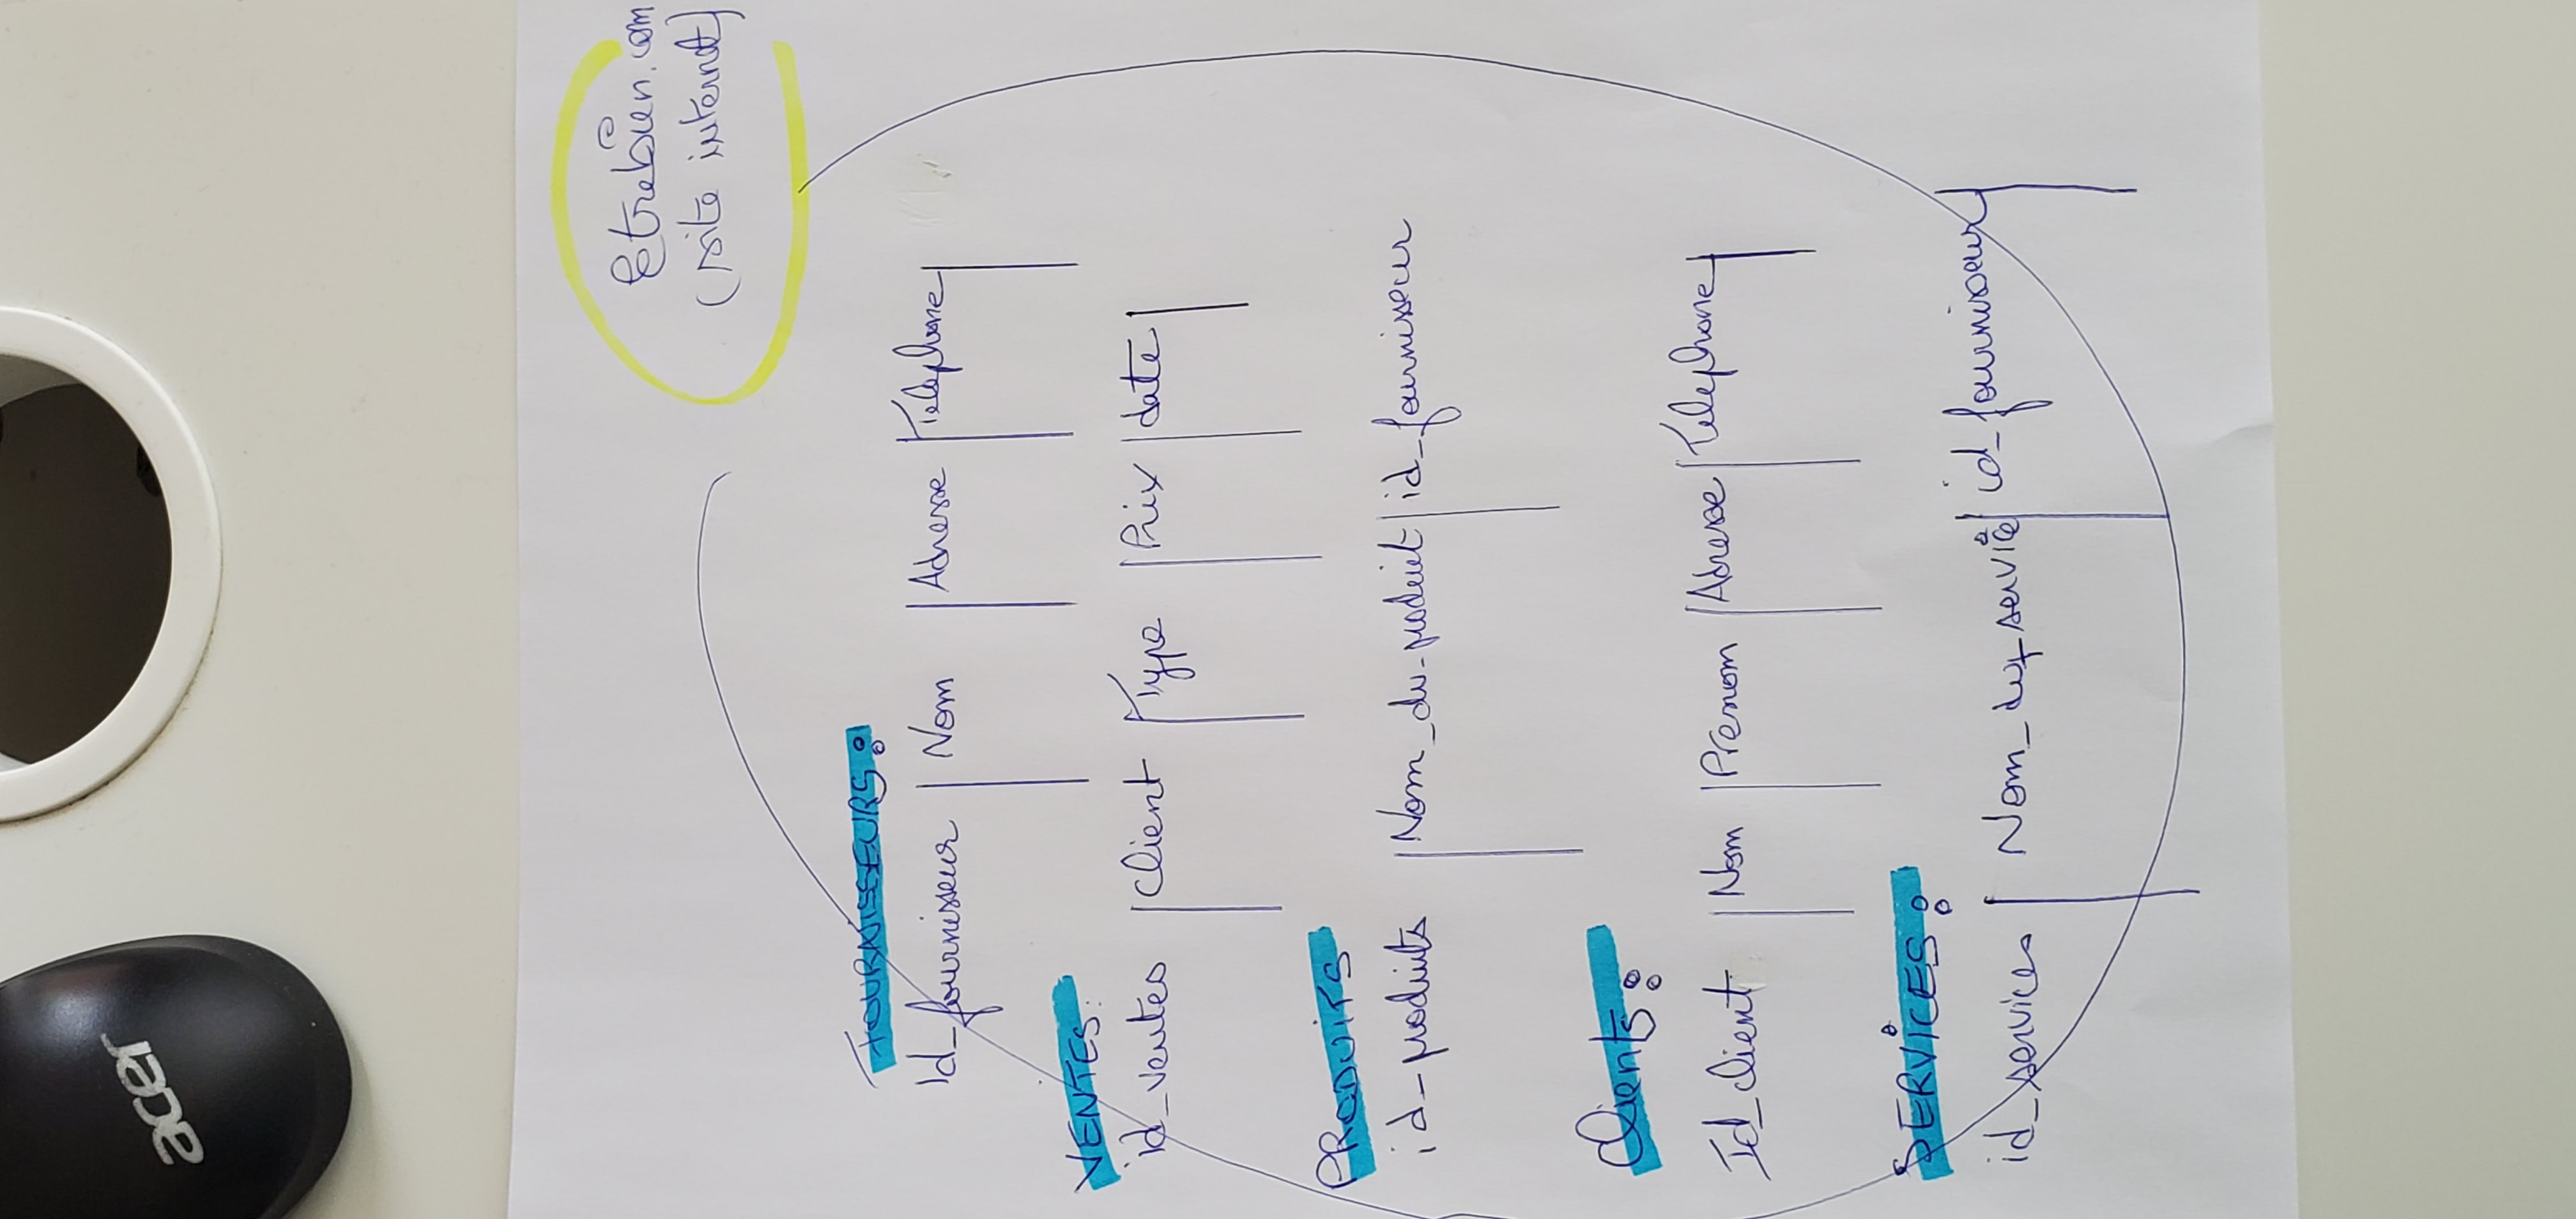 acer
Etrebien.com
(site internet)
FOURNISSEURS:
Id_fournisseur | Nom | Adresse | Telephone |
VENTES:
id_ventes | Client | Type | Prix | date |
PRODUITS
id_produits | Nom_du_produit | id_fournisseur
Clients:
Id_client | Nom | Prenom | Adresse | Telephone |
SERVICES:
id_services | Nom_du_service | id_fournisseur |